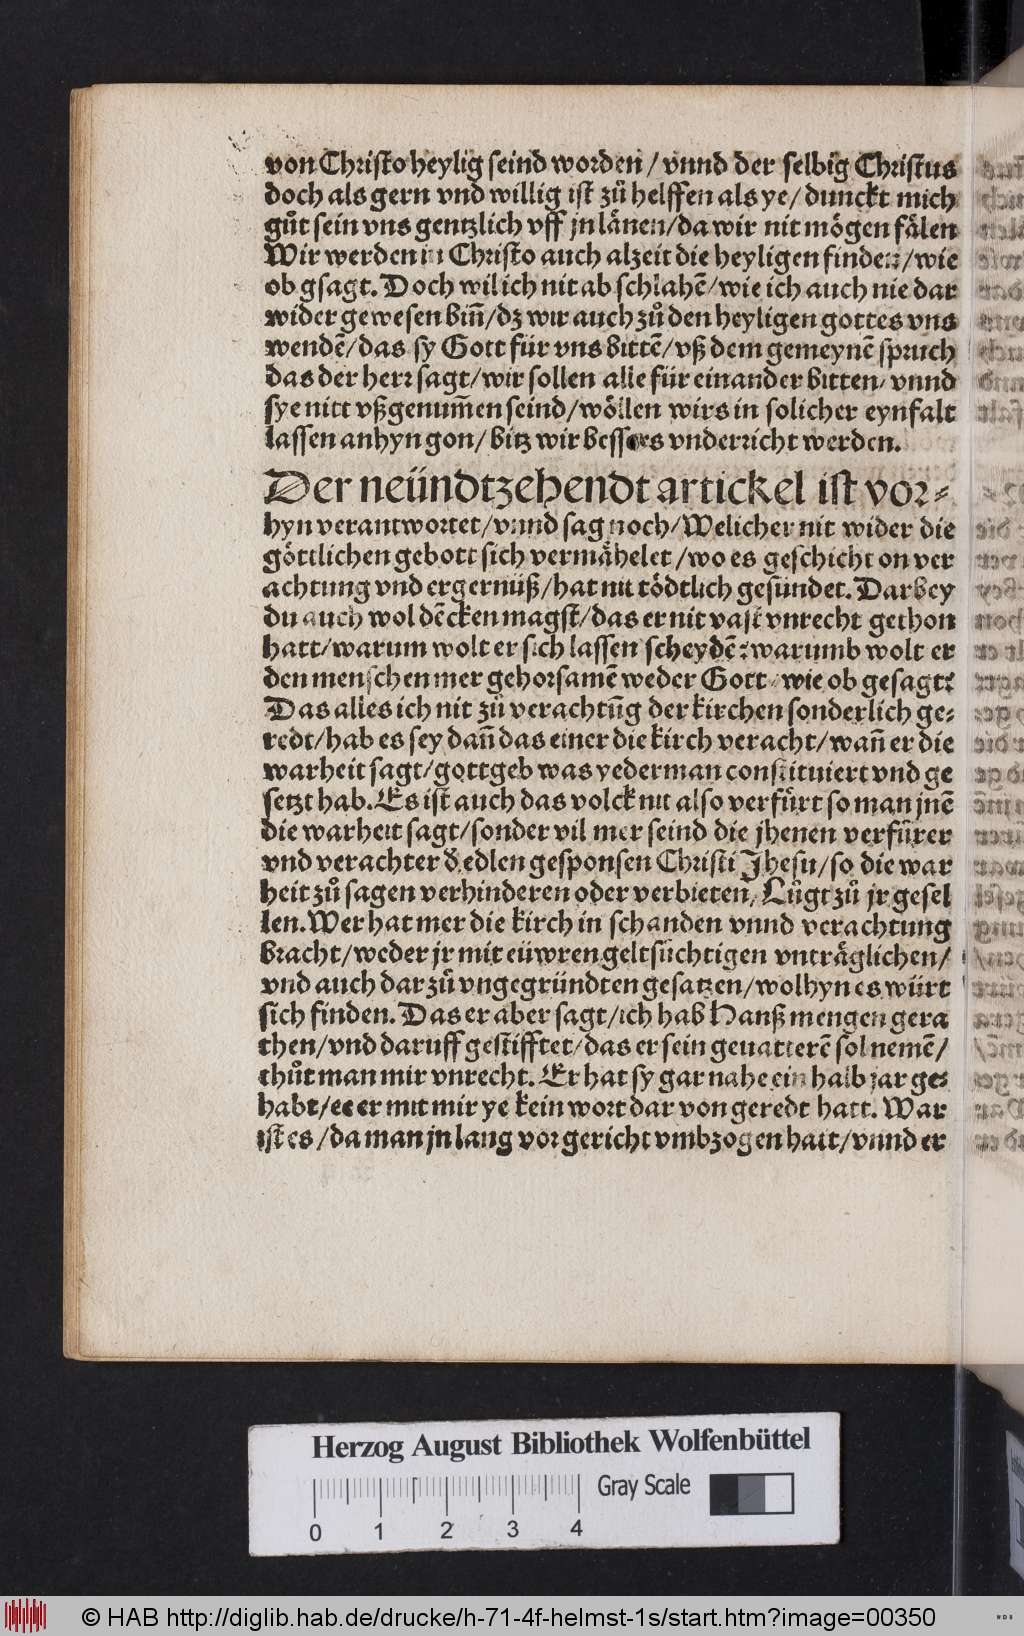 von Christo heylig seind worden / vnnd der selbig Christus
doch als gern vnd willig ist zů helffen als ye / dunckt mich
gůt sein vns gentzlich vff jn länen / da wir nit mögen fälen
Wir werden in Christo auch alzeit die heyligen finden / wie
ob gsagt. Doch wil ich nit ab schlahē / wie ich auch nie dar
wider gewesen biñ / dz wir auch zů den heyligen gottes vns
wendē / das sy Gott für vns bittē / vß dem gemeynē spruch
das der herr sagt / wir sollen alle für einander bitten / vnnd
sye nitt vßgenum̃en seind / wöllen wirs in solicher eynfalt
lassen anhyn gon / bitz wir bessers vnderricht werden.
Der neündtzehendt artickel ist vor⸗
hyn verantwortet / vnnd sag noch / Welicher nit wider die
göttlichen gebott sich vermähelet / wo es geschicht on ver
achtung vnd ergernüß / hat nit tödtlich gesündet. Darbey
du auch wol dēcken magst / das er nit vast vnrecht gethon
hatt / warum wolt er sich lassen scheydē: warumb wolt er
den menschen mer gehorsamē weder Gott / wie ob gesagt:
Das alles ich nit zů verachtũg der kirchen sonderlich ge⸗
redt / hab es sey dañ das einer die kirch veracht / wañ er die
warheit sagt / gott geb was yederman constituiert vnd ge
setzt hab. Es ist auch das volck nit also verfürt so man jnē
die warheit sagt / sonder vil mer seind die jhenen verfürer
vnd verachter d̕ edlen gesponsen Christi Jhesu / so die war
heit zů sagen verhinderen oder verbieten / Lůgt zů jr gesel
len. Wer hat mer die kirch in schanden vnnd verachtung
bracht / weder jr mit eüwren geltsüchtigen vnträglichen /
vnd auch darzů vngegründten gesatzen / wolhyn es würt
sich finden. Das er aber sagt / ich hab Hanß mengen gera
then / vnd daruff gestifftet / das er sein geuatterē sol nemē /
thůt man mir vnrecht. Er hat sy gar nahe ein halb jar ge⸗
habt / ee er mit mir ye kein wort dar von geredt hatt. War
ist es / da man jn lang vor gericht vmbzogen hatt / vnnd er
Herzog August Bibliothek Wolfenbüttel
Gray Scale
0 1 2 3 4
© HAB http://diglib.hab.de/drucke/h-71-4f-helmst-1s/start.htm?image=00350